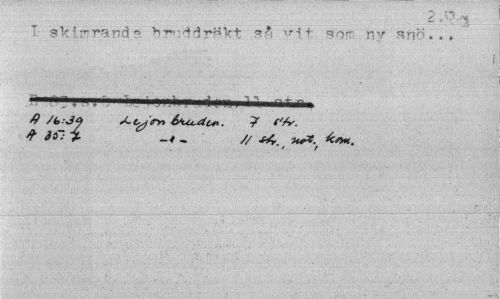 I skimrande bruddräkt så vit som ny snö...
A 16:39 Lejonbruden. 7 str.
A 35:7 -"- 11 str., not., kom.